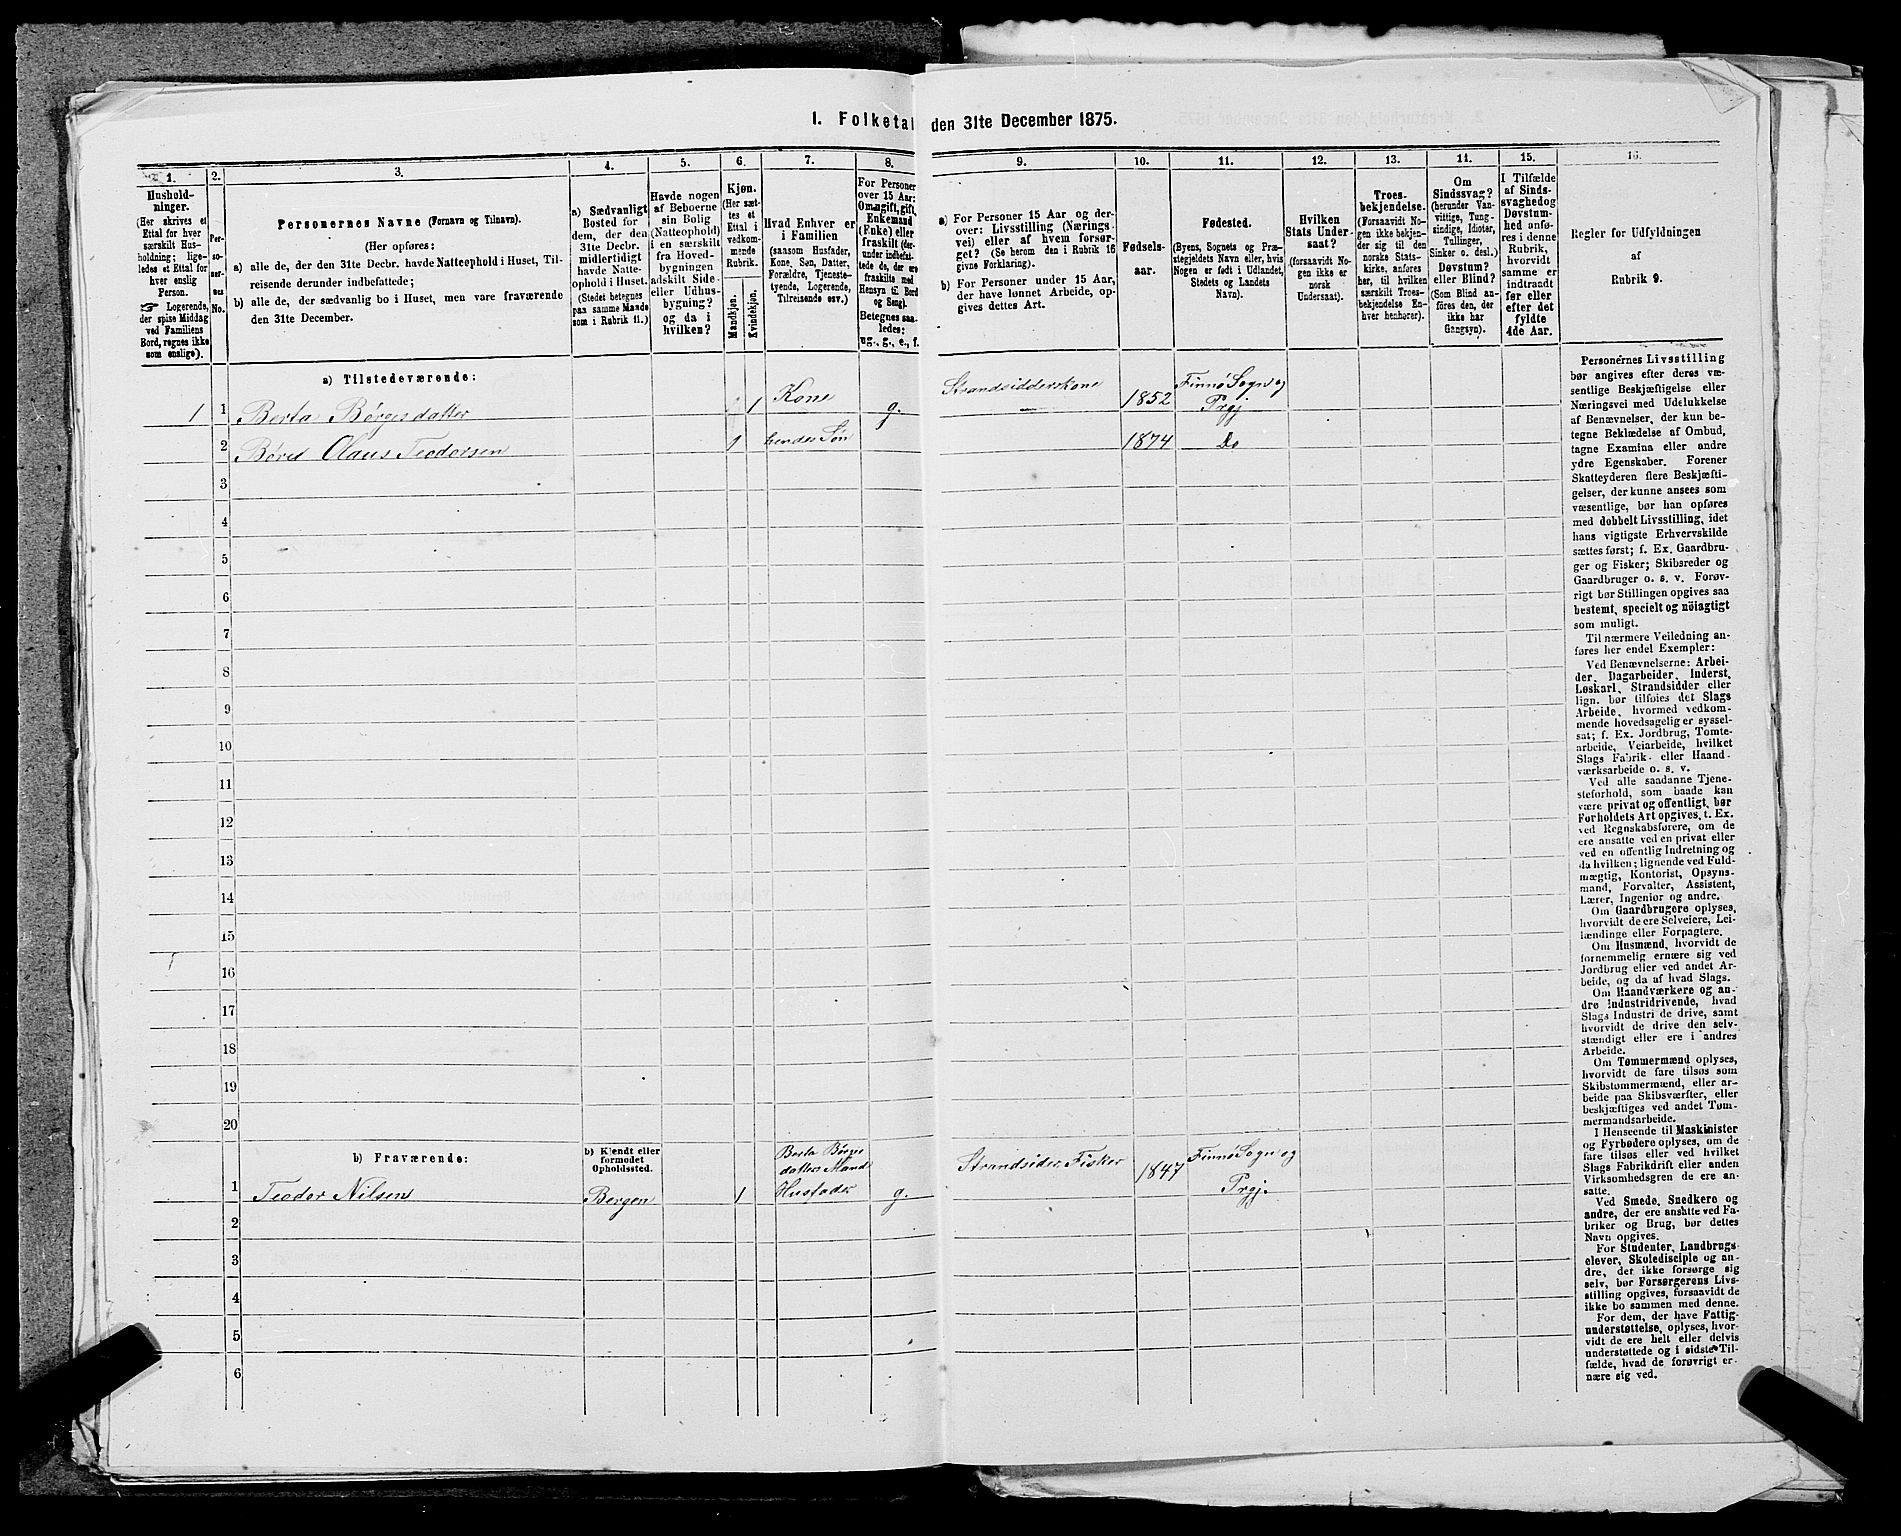 1. Folketal den 31te December 1875.
1.
Hushold-
ninger.
(Her skrives et
Ettal for hver
særskilt Hus-
holdning; lige-
ledes et Ettal for
hver enslig
Person.
☞ Logerende,
der spise Middag
ved Familiens
Bord, regnes ikke
som enslige).
2.
Per-
so-
ner-
nes
No.
3.
Personernes Navne (Fornavn og Tilnavn).
(Her opføres:
a) alle de, der den 31te Decbr. havde Natteophold i Huset, Til-
reisende derunder indbefattede;
b) alle de, der sædvanlig bo i Huset, men vare fraværende
den 31te December.
4.
a) Sædvanligt
Bosted for
dem, der den
31te Decbr.
midlertidigt
havde Natte-
ophold i Huset.
(Stedet betegnes
paa samme Maade
som i Rubrik 11.)
5.
Havde nogen
af Beboerne
sin Bolig
(Natteophold)
i en særskilt
fra Hoved-
bygningen
adskilt Side-
eller Udhus-
bygning?
og da i
hvilken?
6.
Kjøn.
(Her sæt-
tes et
Ettal i
vedkom-
mende
Rubrik.
Mandkjøn.
Kvindekjøn.
7.
Hvad Enhver er
i Familien
(saasom Husfader,
Kone, Søn, Datter,
Forældre, Tjeneste-
tyende, Logerende,
Tilreisende osv.)
8.
For Personer
over 15 Aar:
Om ugift, gift,
Enkemand
(Enke) eller
fraskilt (der-
under indbefat-
tede de, der ere
fraskilte med
Hensyn til Bord
og Seng).
Betegnes saa-
ledes:
ug., g., e., f.
9.
a) For Personer 15 Aar og der-
over: Livsstilling (Nærings-
vei) eller af hvem forsør-
get? (Se herom den i Rubrik 16
givne Forklaring).
b) For Personer under 15 Aar,
der have lønnet Arbeide, op-
gives dettes Art.
10.
Fødsels-
aar.
11.
Fødested.
(Byens, Sognets og Præ-
stegjeldets Navn eller, hvis
Nogen er født i Udlandet,
Stedets og Landets
Navn).
12.
Hvilken
Stats Under-
saat?
(forsaavidt No-
gen ikke er
norsk
Undersaat).
13.
Troes-
bekjendelse.
(Forsaavidt No-
gen ikke bekjen-
der sig til den
norske Stats-
kirke, anføres
her, til hvilken
særskilt Troes-
bekjendelse En-
hver henhører).
14.
Om
Sindssvag?
(herunder Van-
vittige, Tung-
sindige, Idioter,
Tullinger,
Sinker o. desl.)
Døvstum?
eller Blind?
(Som Blind an-
føres den, der
ikke har
Gangsyn).
15.
I Tilfælde
af Sinds-
svaghed og
Døvstum-
hed anfø-
res i denne
Rubrik,
hvorvidt
samme er
indtraadt
før eller
efter det
fyldte
4de Aar.
16.
Regler for Udfyldningen
af
Rubrik 9.
a) Tilstedeværende:
1 1 Berta Børgesdatter 1 Kone g. Strandsidderskone 1852 Finnø Sogn og
Prgj
2 Børed Olaus Teodorsen 1 hendes Søn 1874 Do
3
4
5
6
7
8
9
10
11
12
13
14
15
16
17
18
19
20
b) Fraværende:
b) Kjendt eller
formodet
Opholdssted.
1 Teodor Nilsen Bergen 1 Berta Børges
datters Mand
Husfader g. Strandsider, Fisker 1847 Finnø Sogn og
Prgj.
2
3
4
5
6
Personernes Livsstilling
bør angives efter deres væ-
sentlige Beskjæftigelse eller
Næringsvei med Udelukkelse
af Benævnelser, der kun be-
tegne Beklædelse af Ombud,
tagne Examina eller andre
ydre Egenskaber. Forener
Skatteyderen flere Beskjæfti-
gelser, der kunne ansees som
væsentlige, bør han opføres
med dobbelt Livsstilling, idet
hans vigtigste Erhvervskilde
sættes først; f. Ex. Gaardbru-
ger og Fisker; Skibsreder og
Gaardbruger o. s. v. Forøv-
rigt bør Stillingen opgives saa
bestemt, specielt og nöiagtigt
som muligt.
Til nærmere Veiledning an-
føres her endel Exempler:
Ved Benævnelserne: Arbei-
der, Dagarbeider, Inderst,
Løskarl, Strandsidder eller
lign. bør tilføies det Slags
Arbeide, hvormed vedkom-
mende hovedsagelig er syssel-
sat; f. Ex. Jordbrug, Tomte-
arbeide, Veiarbeide, hvilket
Slags Fabrik- eller Haand-
værksarbeide o. s. v.
Ved alle saadanne Tjene-
steforhold, som baade kan
være privat og offentligt, bør
Forholdets Art opgives, t. Ex.
ved Regnskabsførere, om de
ere ansatte ved en privat eller
ved en offentlig Indretning og
da hvilken; lignende ved Fuld-
mægtig, Kontorist, Opsyns-
mand, Forvalter, Assistent,
Lærer, Ingeniør og andre.
Om Gaardbrugere oplyses,
hvorvidt de ere Selveiere, Lei-
lændinge eller Forpagtere.
Om Husmænd, hvorvidt de
fornemmelig ernære sig ved
Jordbrug eller ved andet Ar-
beide, og da af hvad Slags.
Om Haandværkere og an-
dre Industridrivende, hvad
Slags Industri de drive, samt
hvorvidt de drive den selv-
stændigt eller ere i andres
Arbeide.
Om Tømmermænd oplyses,
hvorvidt de fare tilsøs som
Skibstømmermænd, eller ar-
beide paa Skibsværfter, eller
beskjæftiges ved andet Tøm-
mermandsarbeide.
I Henseende til Maskinister
og Fyrbødere oplyses, om de
fare tilsøs eller ved hvilket
Slags Fabrikdrift eller anden
Virksomhedsgren de ere an-
satte.
Ved Smede, Snedkere og
andre, der ere ansatte ved Fa-
briker og Brug, bør dettes
Navn opgives.
For Studenter, Landbrugs-
elever, Skoledisciple og an-
dre, der ikke forsørge sig
selv, bør Forsørgerens Livs-
stilling opgives, forsaavidt de
ikke bo sammen med denne.
For dem, der have Fattig-
understøttelse, oplyses, hvor-
vidt de ere helt eller delvis
understøttede og i sidste Til-
fælde, hvad de forøvrigt er-
nære sig ved.